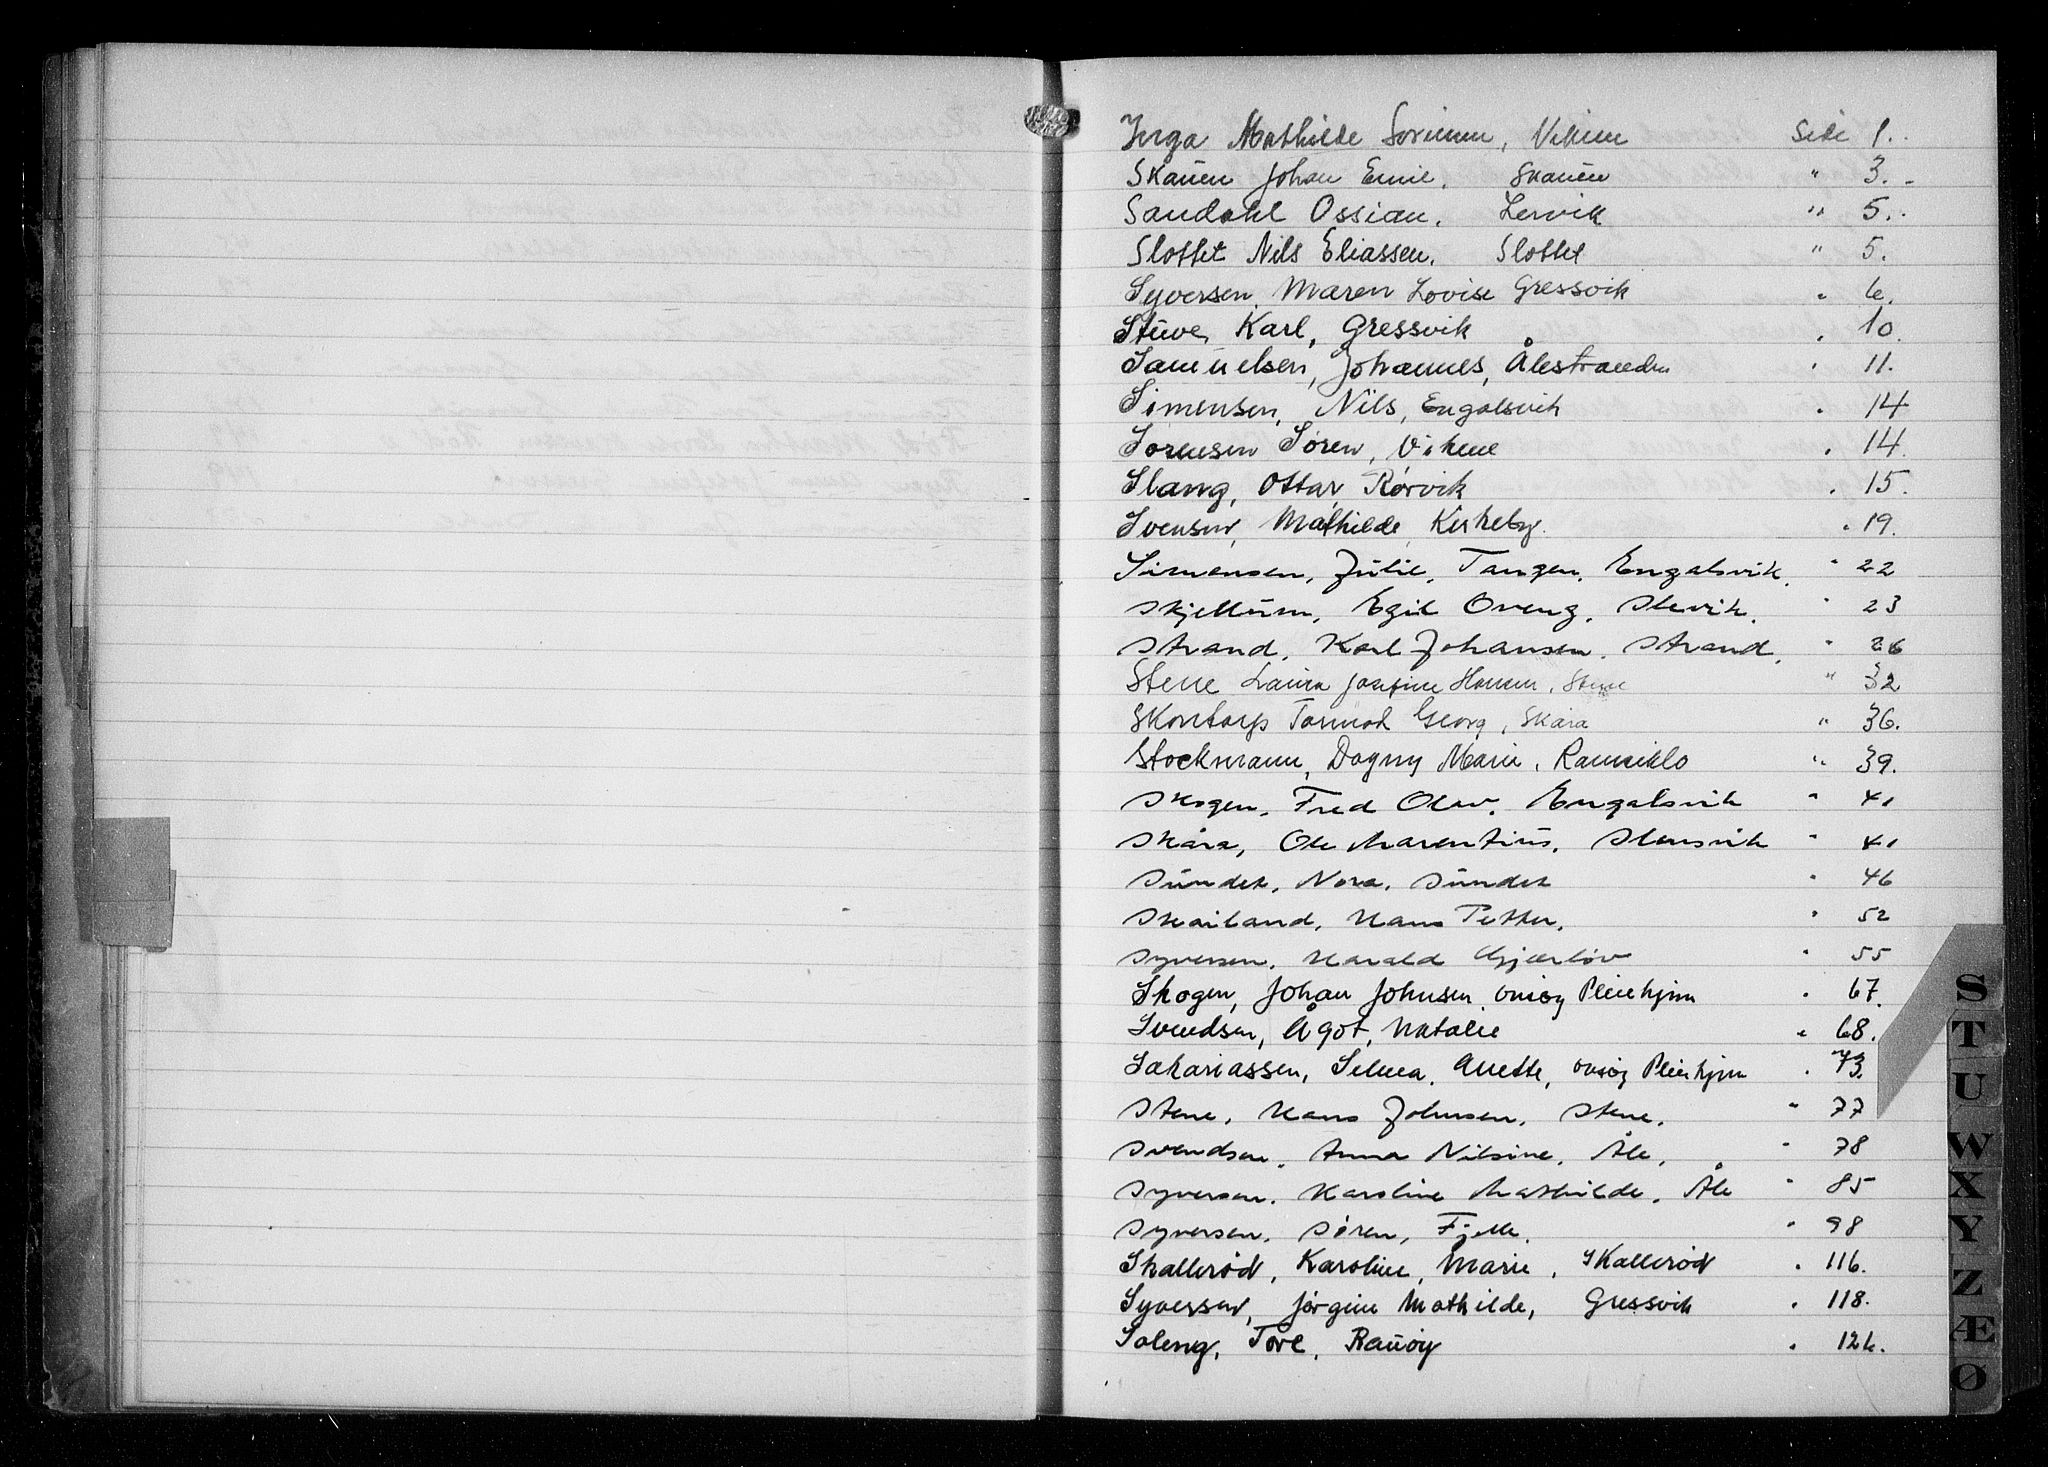 Inga Mathilde Sørensen, Vikene Side 1.
Skauen Johan Emil, Skauen " 3.
Sandahl Ossian, Lervik " 5.
Slottet Nils Eliassen, Slottet " 5.
Syversen, Maren Lovise Gressvik " 6.
Stuve, Karl, Gressvik " 10.
Samuelsen, Johannes, Ålestranden " 11.
Simensen, Nils, Engalsvik " 14
Sørensen Søren, Vikene " 14.
Slang, Ottar, Rørvik " 15.
Svensen, Mathilde, Kirkeby. " 19.
Simensen, Julie, Tangen, Engalsvik, " 22
Skjellum, Egil Oveng, Slevik, " 23
Strand, Karl Johansen, Strand, " 26
Stene Laura Josefine Hansen, Stene " 32
Skontorp Tormod Georg, Skåra " 36.
Stockmann, Dagny Marie, Ramsiklo " 39.
Skogen, Fred Olav, Engalsvik " 41
Skåra, Ole Marentius, Slensvik " 41
Sundet, Nora, Sundet " 46
Skailand, Hans Petter, " 52
Syversen, Harald Gjærløv " 55
Skogen, Johan Johnsen Onsøy Pleiehjem " 67.
Svendsen, Ågot, Natalie " 68.
Sakariassen, Selma, Anette, Onsøy Pleiehjem " 73.
Stene, Hans Johnsen, Stene, " 77
Svendsen, Anna Nilsine, Åle, " 78
Syversen, Karoline Mathilde, Åle " 85
Syversen, Søren, Fjelle, " 98
Skallerød, Karoline, Marie, Skallerød " 116.
Syversen, Jørgine Mathilde, Gressvik " 118.
Soleng, Tore, Rauøy " 126.
S
T
U
W
X
Y
Z
Æ
Ø